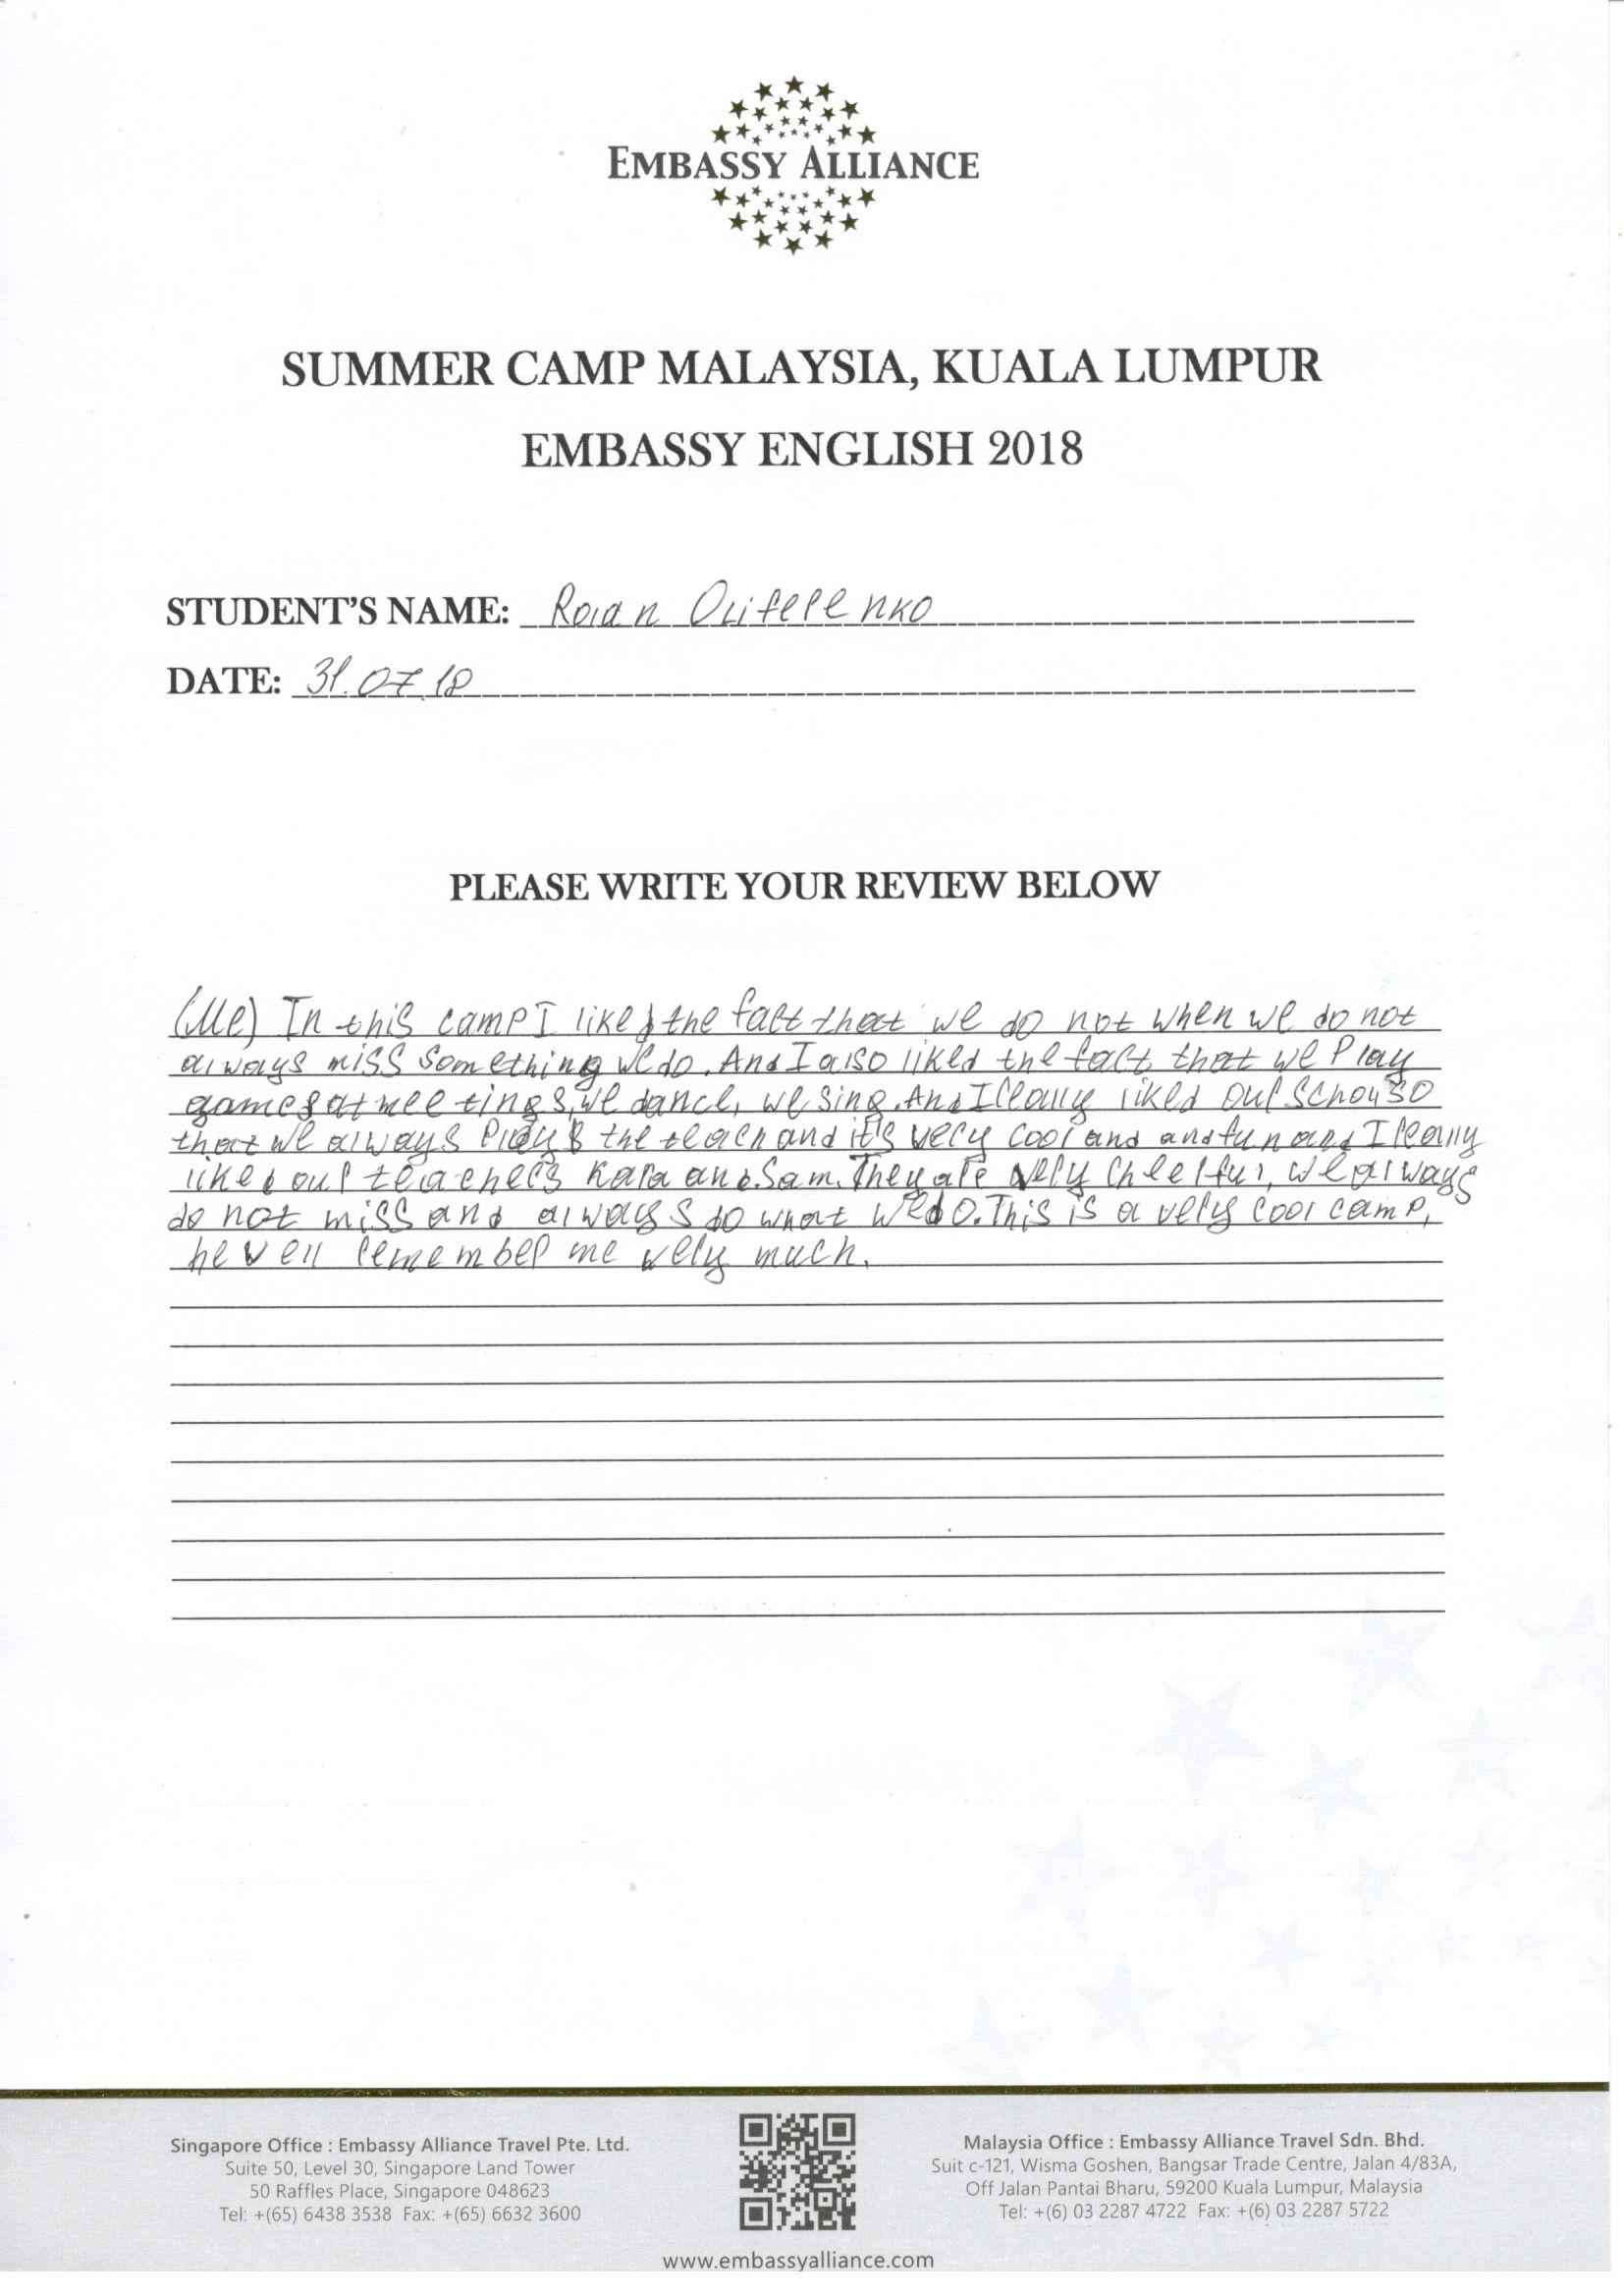 EMBASSY ALLIANCE
SUMMER CAMP MALAYSIA, KUALA LUMPUR
EMBASSY ENGLISH 2018
STUDENT'S NAME:
DATE: 31.07.18
PLEASE WRITE YOUR REVIEW BELOW
(Me) In this camp I liked the fact that we do not when we do not
always miss something we do. And I also liked the fact that we play
games at meetings, we dance, we sing. And I really liked our so
that we always the teach and it's very cool and and fun and I really
liked our teachers Kara and Sam. They are very cheerful, we always
do not miss and always do what we do. This is a very cool camp,
he well remember me very much.
Singapore Office : Embassy Alliance Travel Pte. Ltd.
Suite 50, Level 30, Singapore Land Tower
50 Raffles Place, Singapore 048623
Tel: +(65) 6438 3538 Fax: +(65) 6632 3600
Malaysia Office : Embassy Alliance Travel Sdn. Bhd.
Suit c-121, Wisma Goshen, Bangsar Trade Centre, Jalan 4/83A,
Off Jalan Pantai Bharu, 59200 Kuala Lumpur, Malaysia
Tel: +(6) 03 2287 4722 Fax: +(6) 03 2287 5722
www.embassyalliance.com